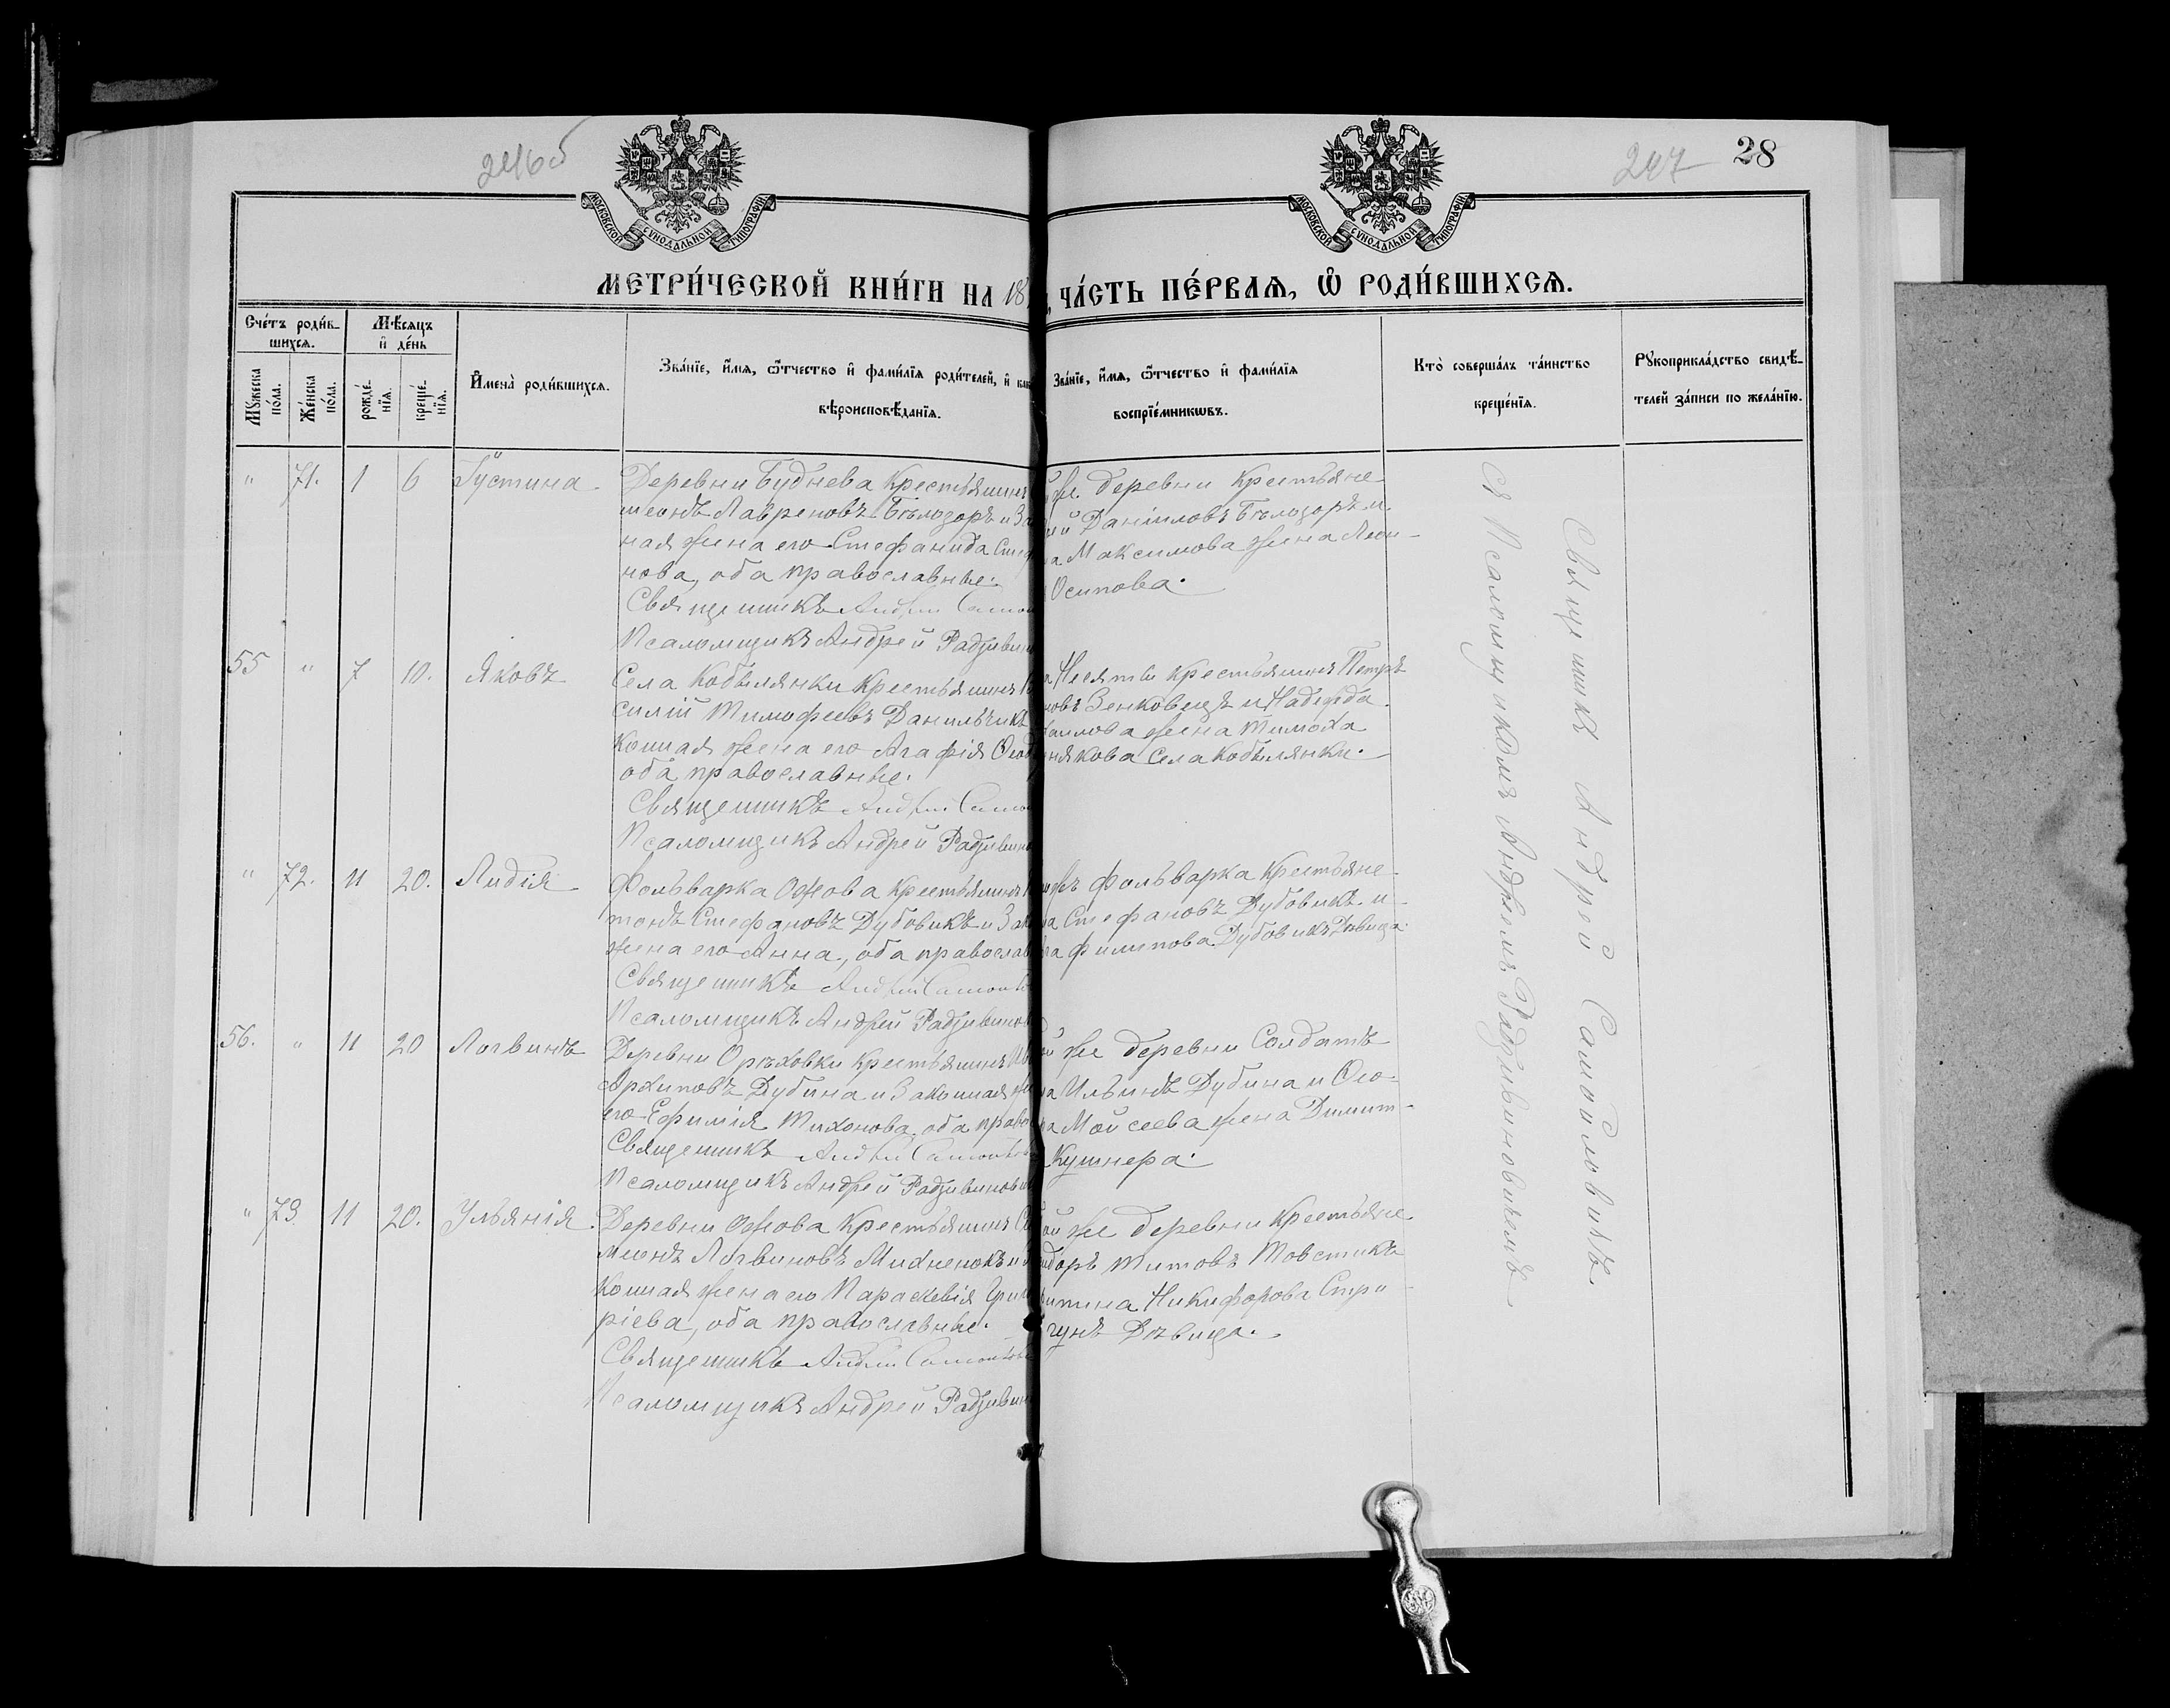 246об
247
28
МОСКОВСКОЙ СѴНОДАЛЬНОЙ ТИПОГРАФІИ
МОСКОВСКОЙ СѴНОДАЛЬНОЙ ТИПОГРАФІИ
МЕТРИ́ЧЕСКОЙ КНИ́ГИ НА 18
ЧА́СТЬ ПЕ́РВАѦ, Ѡ҆ РОДИ́ВШИХСѦ.
Сче́тъ роди́в-
шихсѧ.
Мѣ́сѧцъ
и҆ де́нь
Мꙋ́жеска по́ла.
Же́нска по́ла.
рожде́-нїѧ.
креще́-нїѧ.
И҆мена̀ роди́вшихсѧ.
Зва́нїе, и҆́мѧ, ѻ҆́тчество и҆ фами́лїѧ роди́телей, и҆ как
вѣроисповѣ́данїѧ.
Зва́нїе, и҆́мѧ, ѻ҆́тчество и҆ фами́лїѧ
воспрїе́мникѡвъ.
Кто̀ соверша́лъ та́инство
креще́нїѧ.
Рꙋкоприкла́дство свидѣ́-
телей за́писи по жела́нїю.
" 71. 1 6 Іустина.
Деревни Буднева Крестьянинъ
меонъ Лавреновъ Бѣлозоръ и За
ная жена его Стефанида Стеф
нова, оба православные.
Священникъ Андрей Самой
Псаломщикъ Андрей Радзивин
же деревни Крестьяне
ій Даніиловъ Бѣлозоръ и
на Максимова жена Леон-
Осипова.
55 " 7 10. Яковъ
Села Кобылянки Крестьянинъ Ва
силій Тимофеевъ Данильчикъ
конная жена его Агафія Ѳеод
оба православные.
Священникъ Андрей Самой
Псаломщикъ Андрей Радзивин
Крестьянинъ Петръ
новъ Зенковецъ и Надежда
жена Тимоха
някова Села Кобылянки.
" 72. 11 20. Лидія
Фольварка Ожова Крестьянинъ
тонъ Стефановъ Дубовикъ и Зак
жена его Анна, оба православ
Священникъ Андрей Самойло
Псаломщикъ Андрей Радзивинов
жъ фольварка Крестьяне
на Стефановъ Дубовикъ и
Филипова Дубовикъ Дѣвица.
56. " 11 20 Логвинъ
Деревни Орѣховки Крестьянинъ Ив
Архиповъ Дубина и Законная же
его Ефимія Тихонова, оба право
Священникъ Андрей Самойлов
Псаломщикъ Андрей Радзивинови
й же деревни Солдатъ
на Ильинъ Дубина и Ѳео-
ра Мойсеева жена Димит-
Кушнера.
" 73 11 20. Ульянія.
Деревни Ожова Крестьянинъ Си
меонъ Логвиновъ Михненокъ и За
конная жена его Параскевія Григо
ріева, оба православные.
Священникъ Андрей Самойлов
Псаломщикъ Андрей Радзивин
ой же деревни Крестьяне
идоръ Титовъ Товстикъ
Никифорова Стри
гунъ Дѣвица.
Священникъ Андрей Самойловичъ
Съ Псаломщикомъ Андреемъ Радзивиновичемъ